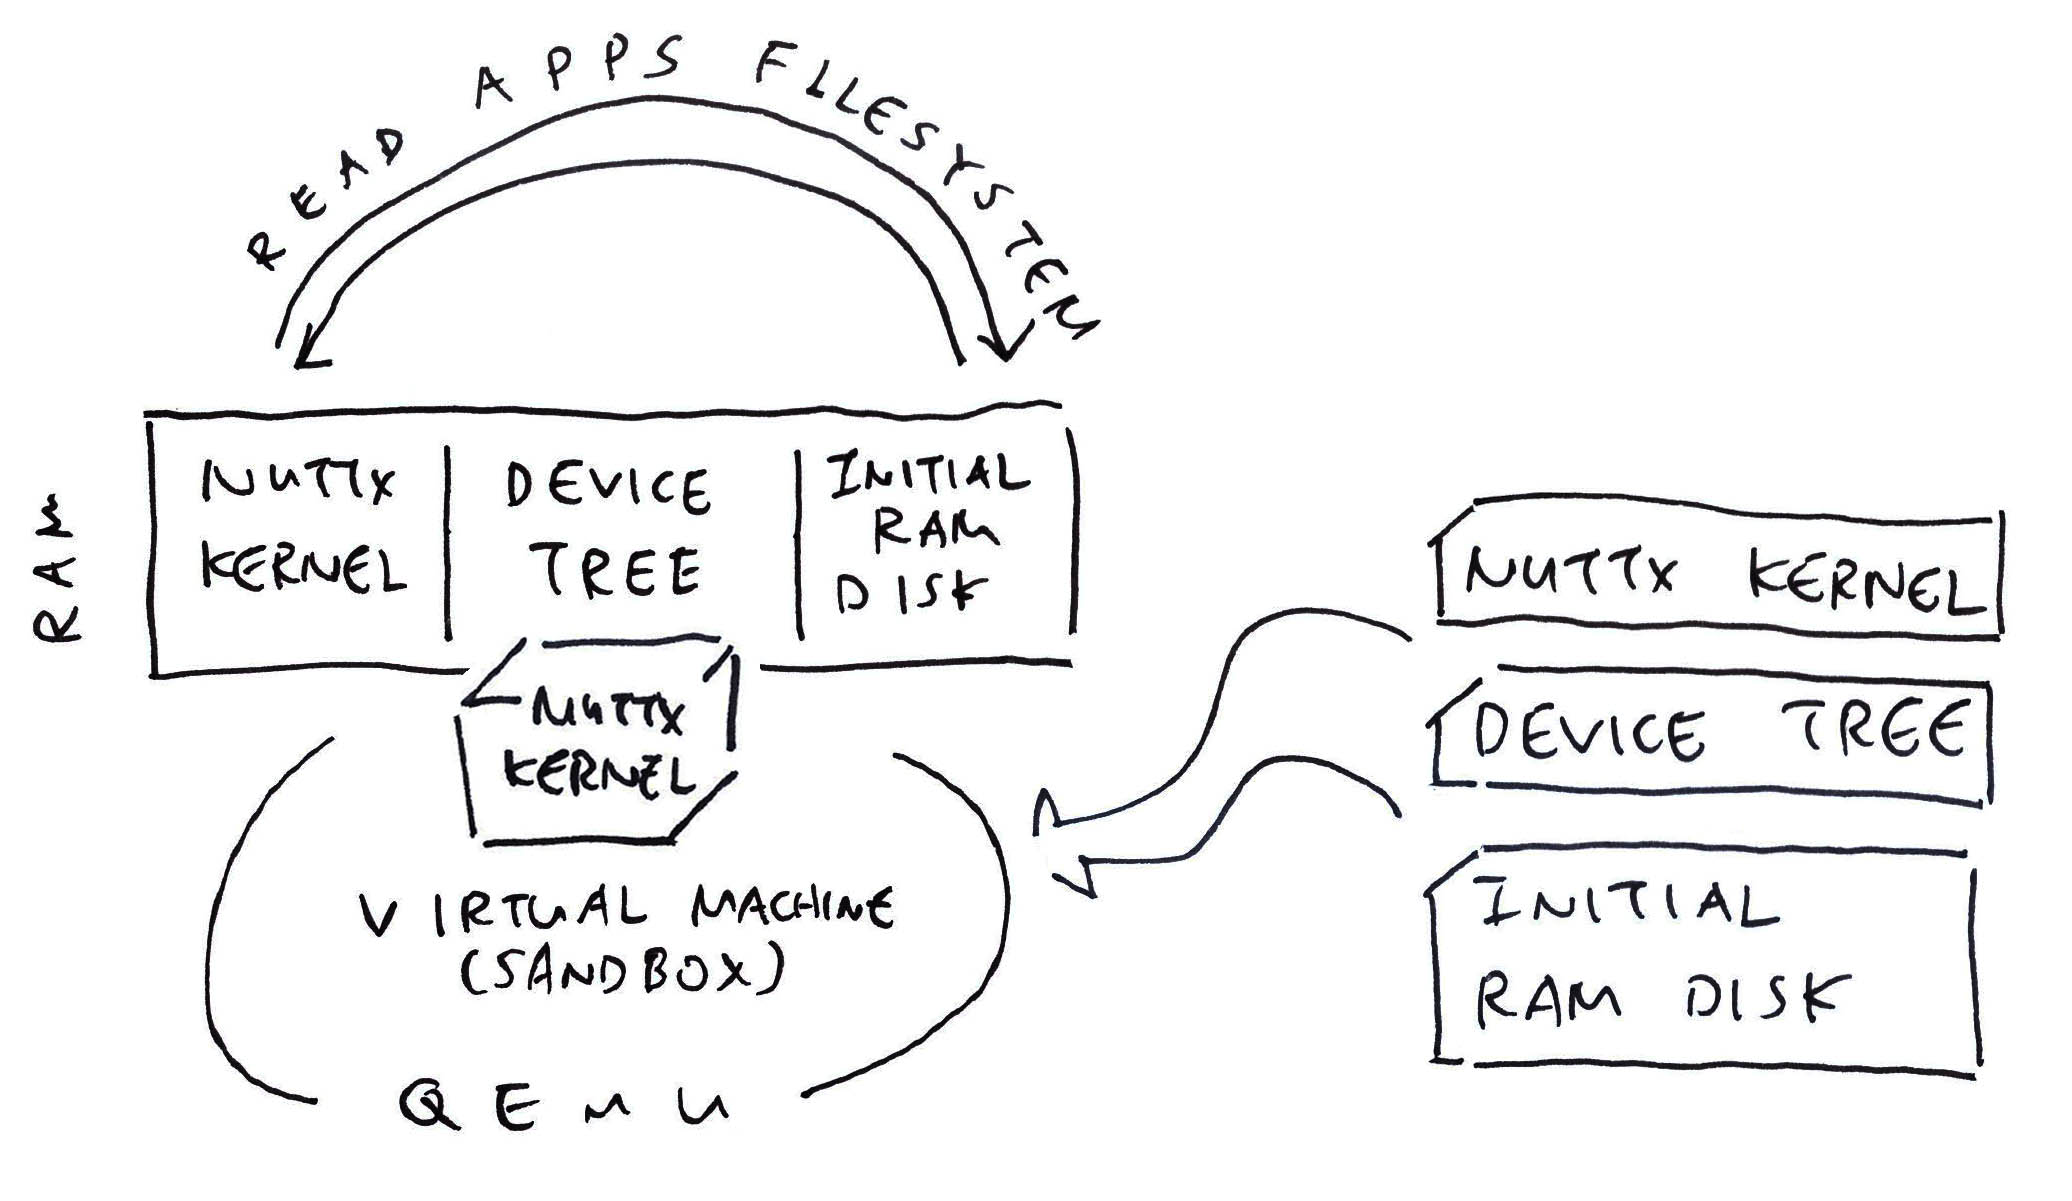 READ APPS FILESYSTEM
RAM
NUTTX
KERNEL
DEVICE
TREE
INITIAL
RAM
DISK
NUTTX
KERNEL
VIRTUAL MACHINE
(SANDBOX)
QEMU
NUTTX KERNEL
DEVICE TREE
INITIAL
RAM DISK